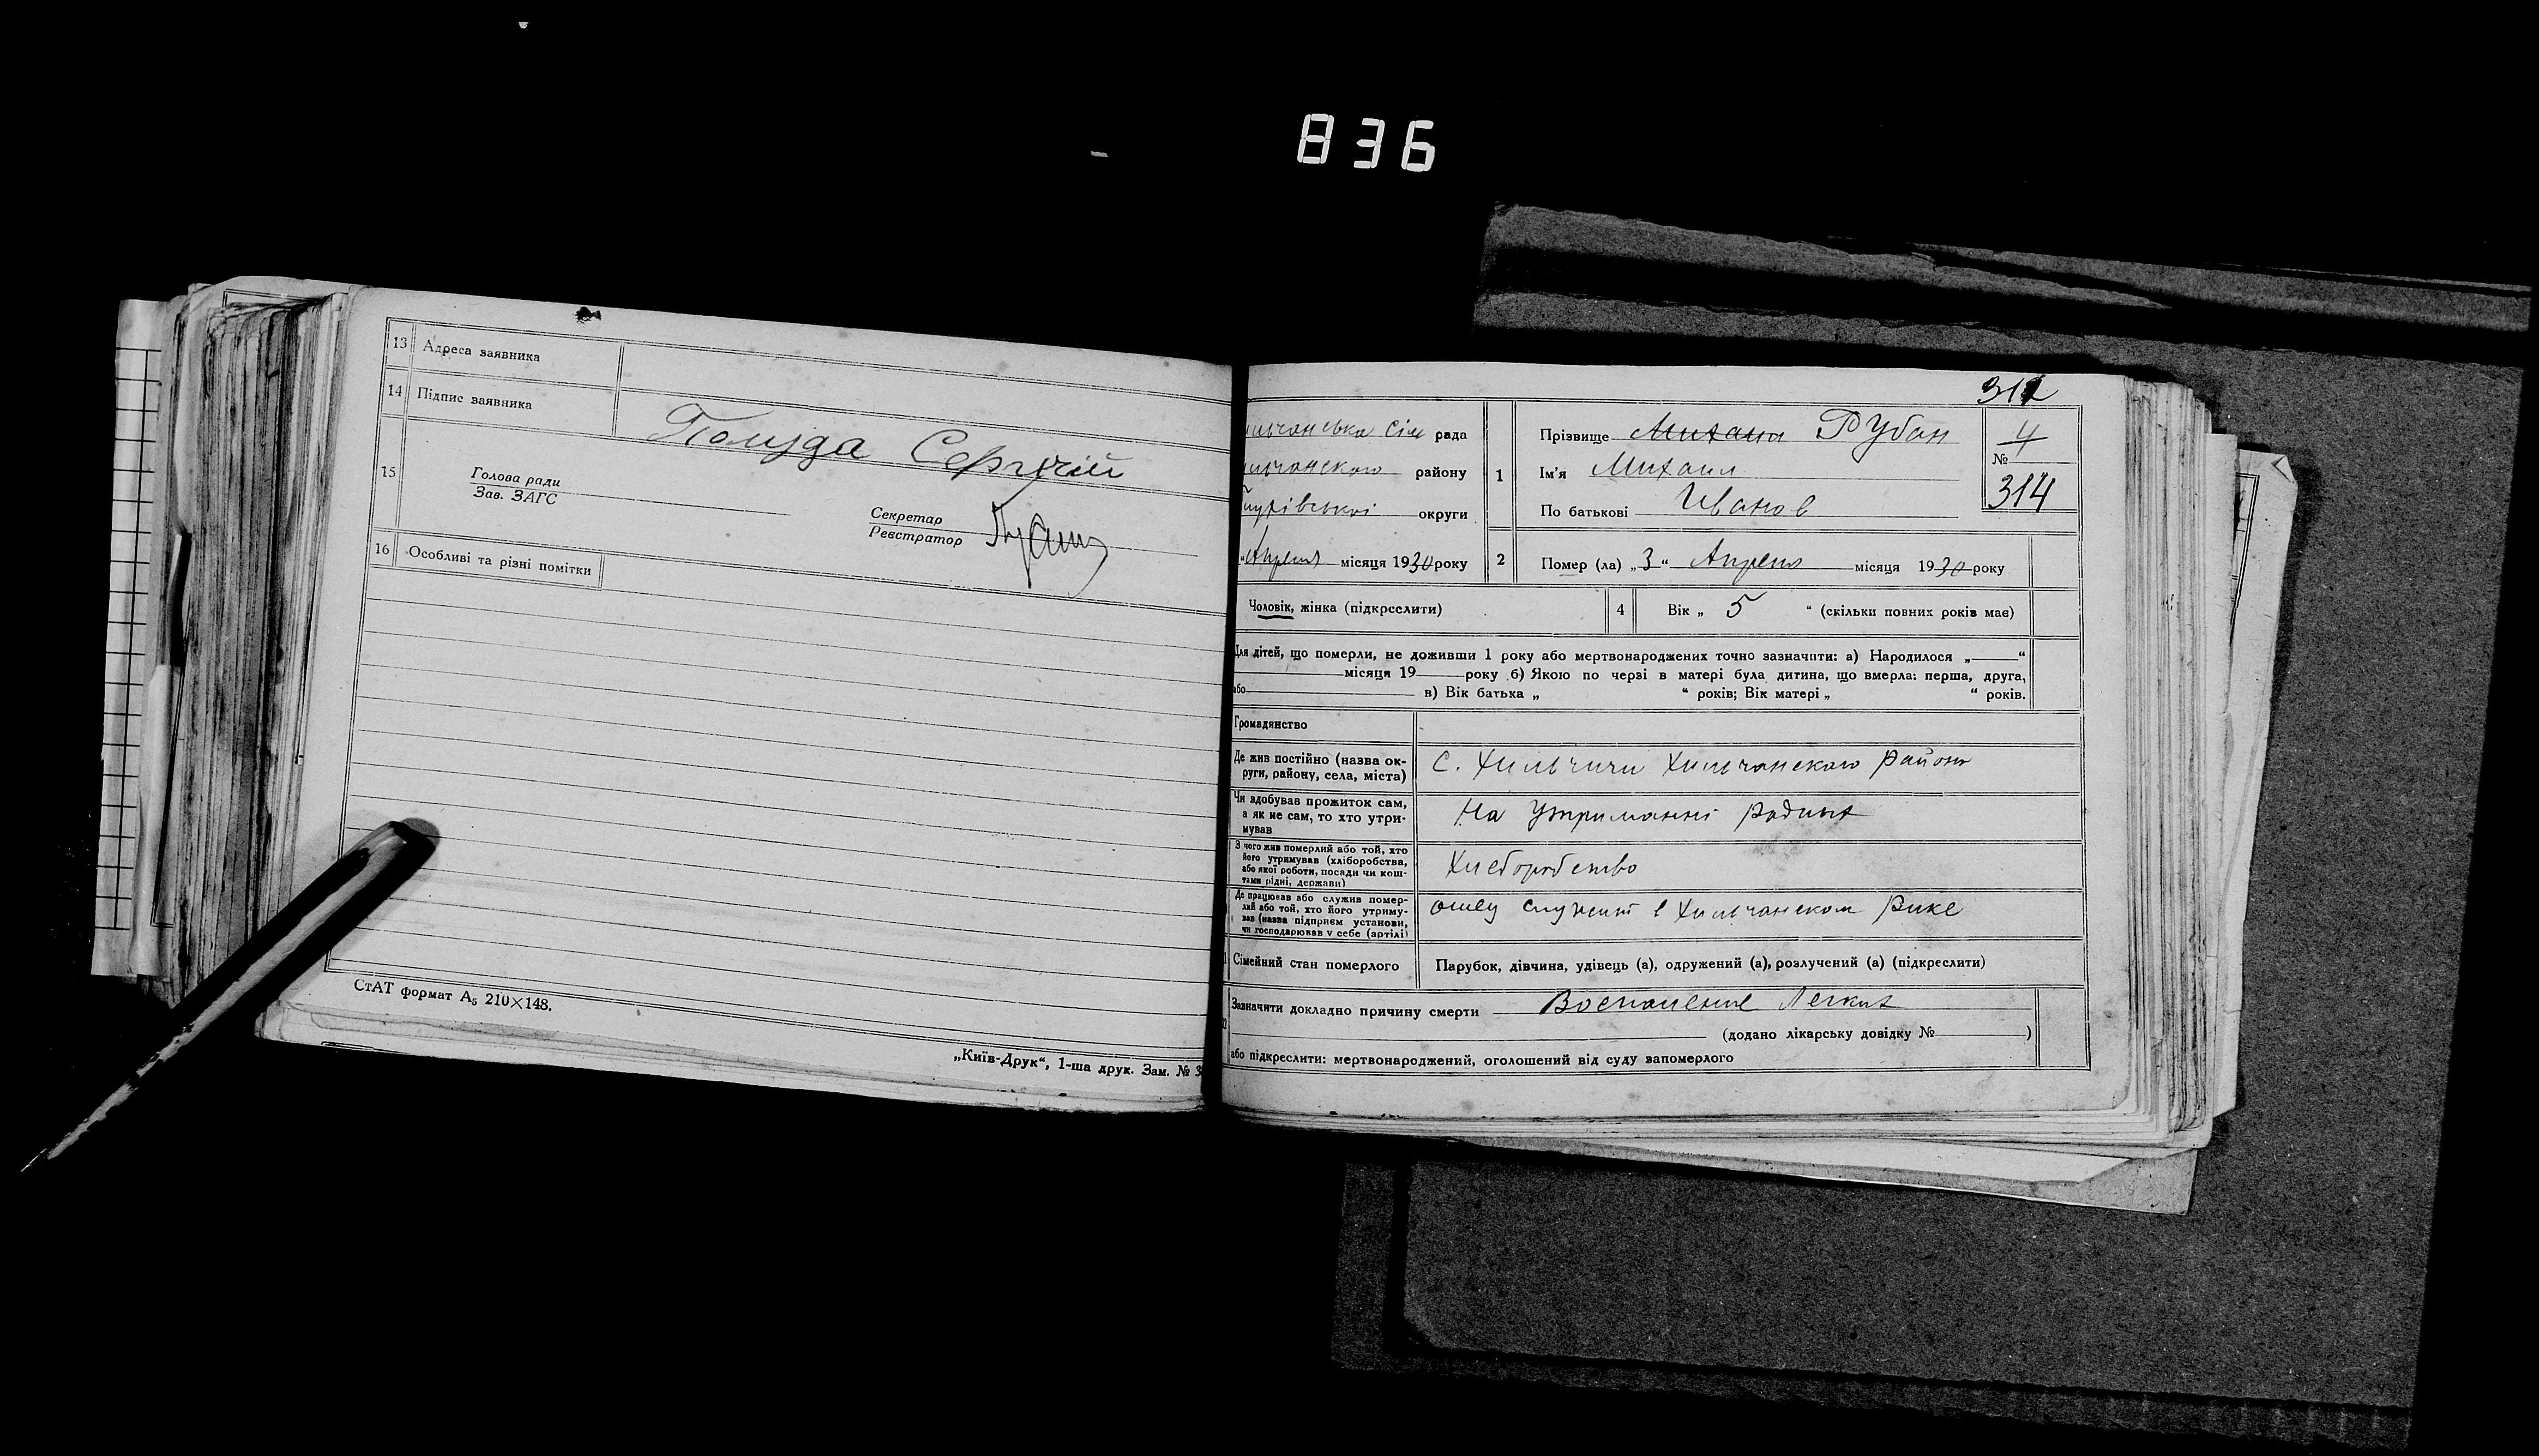 836
13 Адреса заявника
14 Підпис заявника
Помуда Сергій
15 Голова ради
Зав. ЗАГС
Секретар
Реєстратор
16 Особливі та різні помітки
СтАТ формат А₅ 210×148.
„Київ-Друк“, 1-ша друк. Зам. №
314
рада
району
округи
„Апреля місяця 1930 року
1 Прізвище Михаил Рубан
Ім'я Михаил
По батькові Иванов
4
№
314
2 Помер (ла) „3“ Апреля місяця 1930 року
Чоловік, жінка (підкреслити)
4 Вік „ 5 “ (скільки повних років має)
Для дітей, що померли, не доживши 1 року або мертвонароджених точно зазначити: а) Народилося „ “
місяця 19 року б) Якою по черзі в матері була дитина, що вмерла: перша, друга,
або в) Вік батька „ “ років; Вік матері „ “ років.
Громадянство
Де жив постійно (назва округи, району, села, міста) с. Хильчичи Хильчанского района
Чи здобував прожиток сам, а як не сам, то хто утримував На утриманні родных
З чого жив померлий або той, хто його утримував (хліборобства, або якої роботи, посади чи коштами рідні, держави) Хлеборобство
Де працював або служив померлий або той, хто його утримував (назва підприєм установи, чи господарював у себе (артілі) отец служит в Хильчанском Рике
Сімейний стан померлого Парубок, дівчина, удівець (а), одружений (а), розлучений (а) (підкреслити)
Зазначити докладно причину смерти Воспаление Легких
(додано лікарську довідку № )
або підкреслити: мертвонароджений, оголошений від суду запомерлого